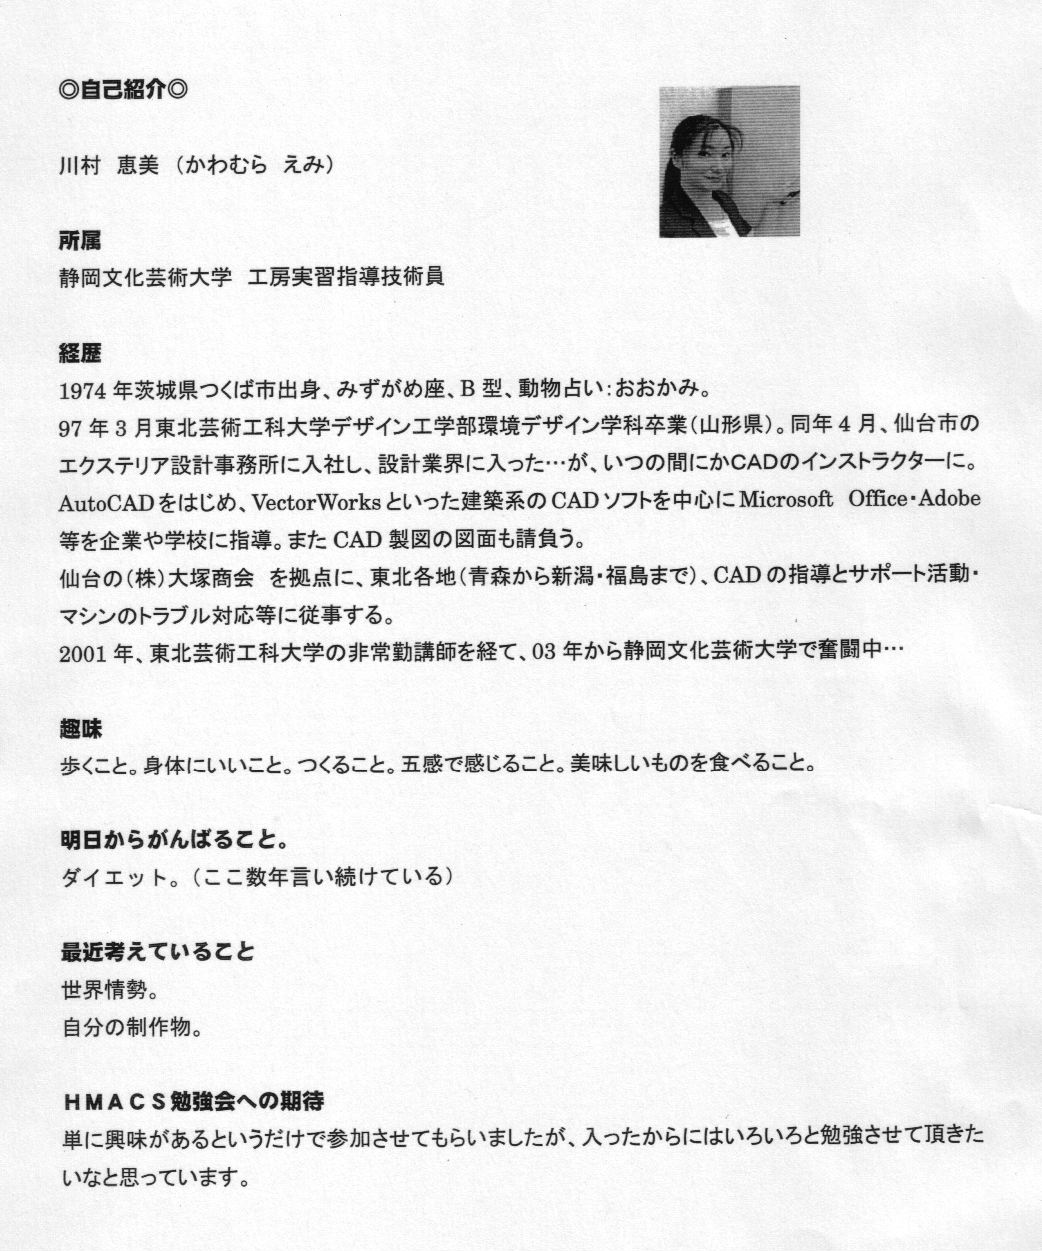 ◎自己紹介◎
川村　恵美　（かわむら　えみ）
所属
静岡文化芸術大学　工房実習指導技術員
経歴
1974 年茨城県つくば市出身、みずがめ座、B 型、動物占い：おおかみ。
97 年 3 月東北芸術工科大学デザイン工学部環境デザイン学科卒業（山形県）。同年 4 月、仙台市の
エクステリア設計事務所に入社し、設計業界に入った…が、いつの間にかCADのインストラクターに。
AutoCADをはじめ、VectorWorksといった建築系のCADソフトを中心にMicrosoft　Office・Adobe
等を企業や学校に指導。また CAD 製図の図面も請負う。
仙台の（株）大塚商会　を拠点に、東北各地（青森から新潟・福島まで）、CAD の指導とサポート活動・
マシンのトラブル対応等に従事する。
2001 年、東北芸術工科大学の非常勤講師を経て、03 年から静岡文化芸術大学で奮闘中…
趣味
歩くこと。身体にいいこと。つくること。五感で感じること。美味しいものを食べること。
明日からがんばること。
ダイエット。（ここ数年言い続けている）
最近考えていること
世界情勢。
自分の制作物。
ＨＭＡＣＳ勉強会への期待
単に興味があるというだけで参加させてもらいましたが、入ったからにはいろいろと勉強させて頂きた
いなと思っています。